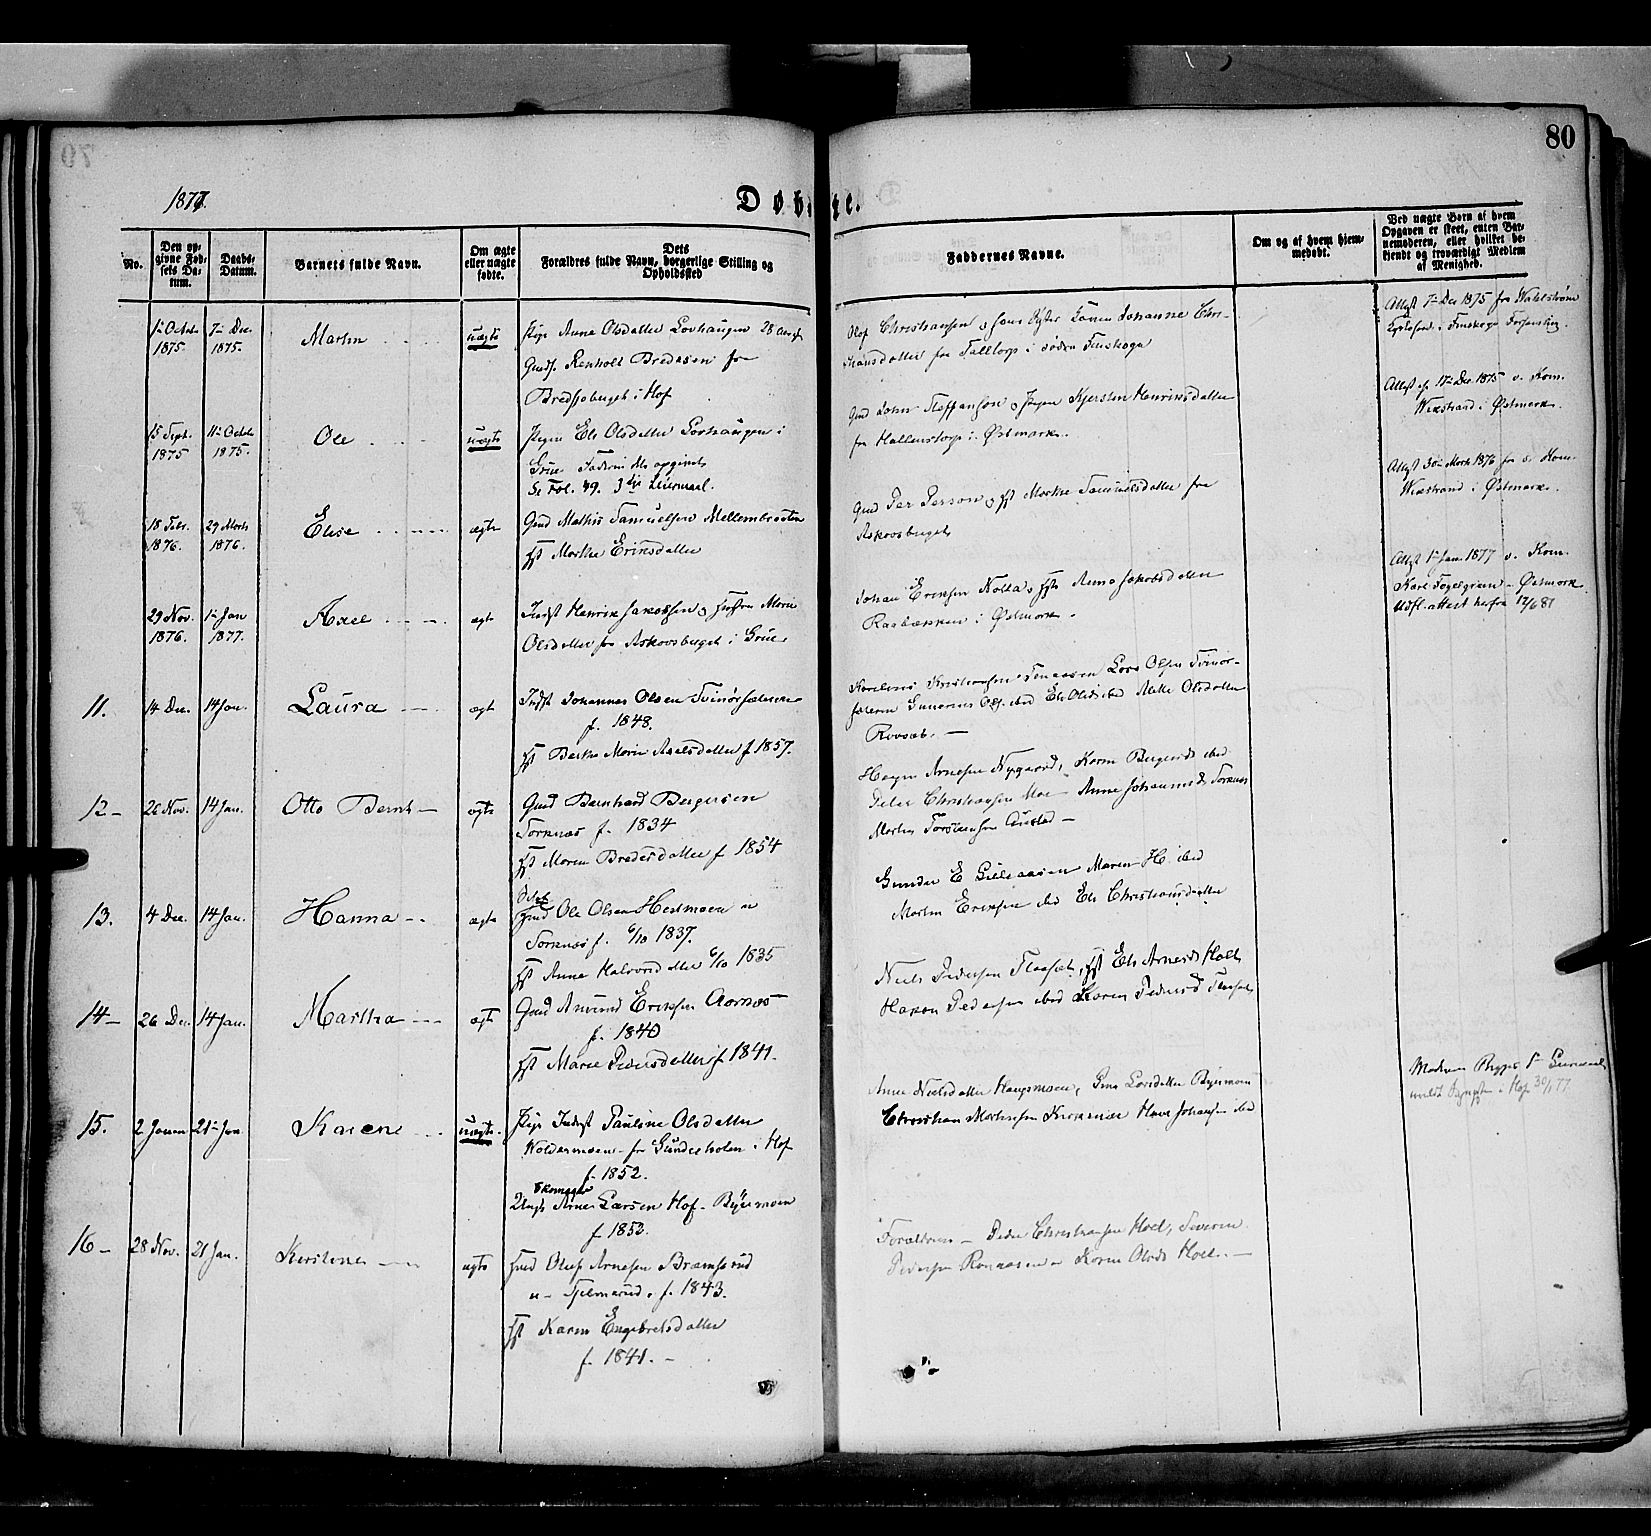 80
1877.
Døbte.
No.
Den opgivne Fødsels Datum.
Daabs-Datum.
Barnets fulde Navn.
Om ægte eller uægte fødte.
Dets Forældres fulde Navn, borgerlige Stilling og Opholdssted
Faddernes Navne.
Om og af hvem hjemmedøbt.
Ved uægte Børn af hvem Opgaven er skeet, enten Barnemoderen, eller hvilket bekjendt og troværdigt Medlem af Menighed.
1ste Octobr 1875. 7de Dec. 1875. Martin uægte Pige Anne Olsdatter Lovhaugen 28 Aar
Gmd. Renholt Bredesen fra
Bredsjoberget i Hof
Olof Christiansen og hans Syster Karin Johanne Chri-
stiansdatter fra Falltorp i södra Finskoga
Attest 7de Dec 1875 fra Wahlstrøm
i Finskoga Forsamling.
15 Sept. 1875 11te Octobr 1875. Ole uægte Pigen Eli Olsdatter Lovhaugen i
Grue Faderen ikke opgivet
Se Fol. 49. 3die Leiermaal.
Gmd John Staffanson og Pigen Kjersten Henriksdatter
fra Hallenstorp i Østmark.
Attest af 17de Dec. 1875 v. Kom.
Wikstrand i Østmark.
18 Febr. 1876. 29 Marts 1876. Elise ægte Gmd Mathis Samuelsen Mellembraaten
Hst Marthe Eriksdatter
Gmd Per Person og Hst Marthe Samuelsdatter fra
Askovsberget
Attest 30te Marts 1876 fra v. Kom.
Wikstrand i Østmark.
29 Nov. 1876. 1ste Jan 1877. Axel ægte Inds Henrik Jakobsen og Hustru Marie
Olsdatter fra Askovsberget i Grue
Johan Eriksen Kolla, Hst Anna Jakobsdatter
Rasbækken i Østmark.
Attest 1ste Jan. 1877 v. Kom.
Karl Fogelgren - Østmark
Udfl. attest herfra 12/6 81
11. 14 Dec. 14 Jan. Laura ægte Inds Johannes Olsen Tvinørsæteren
f. 1848.
Hst Berthe Marie Axelsdatter f 1857.
Karelius Kristiansen Lars Olsen Tvinør-
sæteren Gunerius Ols. ibid Eli Olsd ibid Mathe Olsdatter
Rovsæt.
12 26 Nov. 14 Jan. Otto Bernt ægte Gmd Bernhard Bergersen
Torknæs f. 1834
Hst Maren Bredesdatter f 1854
Hagen Arnesen Nygaard, Karen Bergersd ibid
Peter Christiansen Moe Anne Johannesd Torknæs
Martin Torstensen Austad
13. 4 Dec. 14 Jan. Hanna ægte Gmd Ole Olsen Hestmoen u
Torknæs f. 6/10 1837.
Hst Anne Halvorsdatter 6/10 1835
Gunder E Gilleaasen Maren H. ibid
Martin Eriksen ibid Eli Christiansdatter
14 26 Dec. 14 Jan. Martha ægte Gmd Amund Eriksen Aarnæs
f. 1840
Hst Marie Pedersdatter f 1841.
Niels Pedersen Flaaset, Hst Eli Arnesd Holt
Hakon Pedersen ibid Karen Pedersd
15. 2 Januar 21de Jan Karene uægte. Pige Inderst Pauline Olsdatter
Woldermoen fra Gundersholen i Hof
f. 1852.
Skomager
Ungk Arne Larsen Hof Byermoen
f 1853.
Anne Nielsdatter Haugsmoen, Lina Larsdatter Byermoen
Christian Martinsen Kirkenær Hans Johansen ibid
Moderen
i Hof 30/1 77
16 28 Nov. 21 Jan. Kirstine ægte Gmd Oluf Arnesen Bramserud
u Tjelmerud. f. 1843.
Hst Karen Engebretsdatter
f. 1841.
Forældrene Peder Christiansen Holt, Severin
Pedersen Karen Olsd Holt.